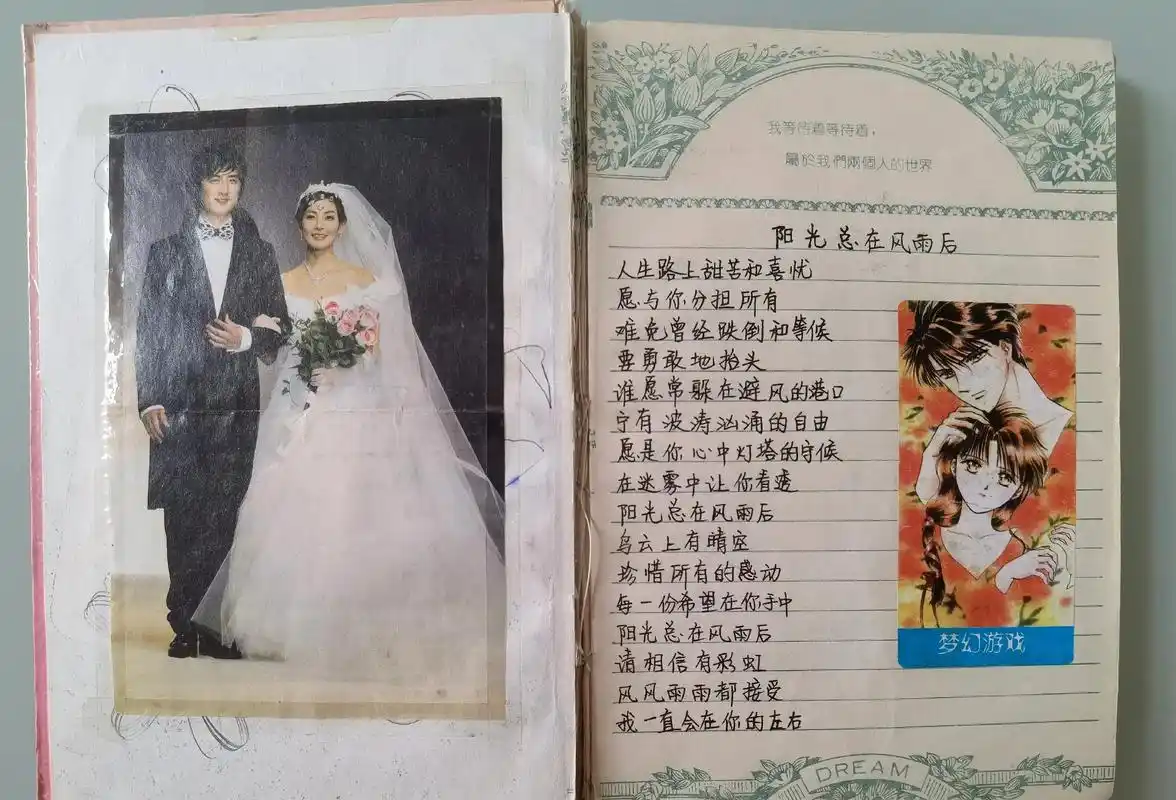 我等待着等待着，
屬於我們兩個人的世界
阳光总在风雨后
人生路上甜苦和喜忧
愿与你分担所有
难免曾经跌倒和等候
要勇敢地抬头
谁愿常躲在避风的港口
宁有波涛汹涌的自由
愿是你心中灯塔的守候
在迷雾中让你看透
阳光总在风雨后
乌云上有晴空
珍惜所有的感动
每一份希望在你手中
阳光总在风雨后
请相信有彩虹
风风雨雨都接受
我一直会在你的左右
梦幻游戏
DREAM